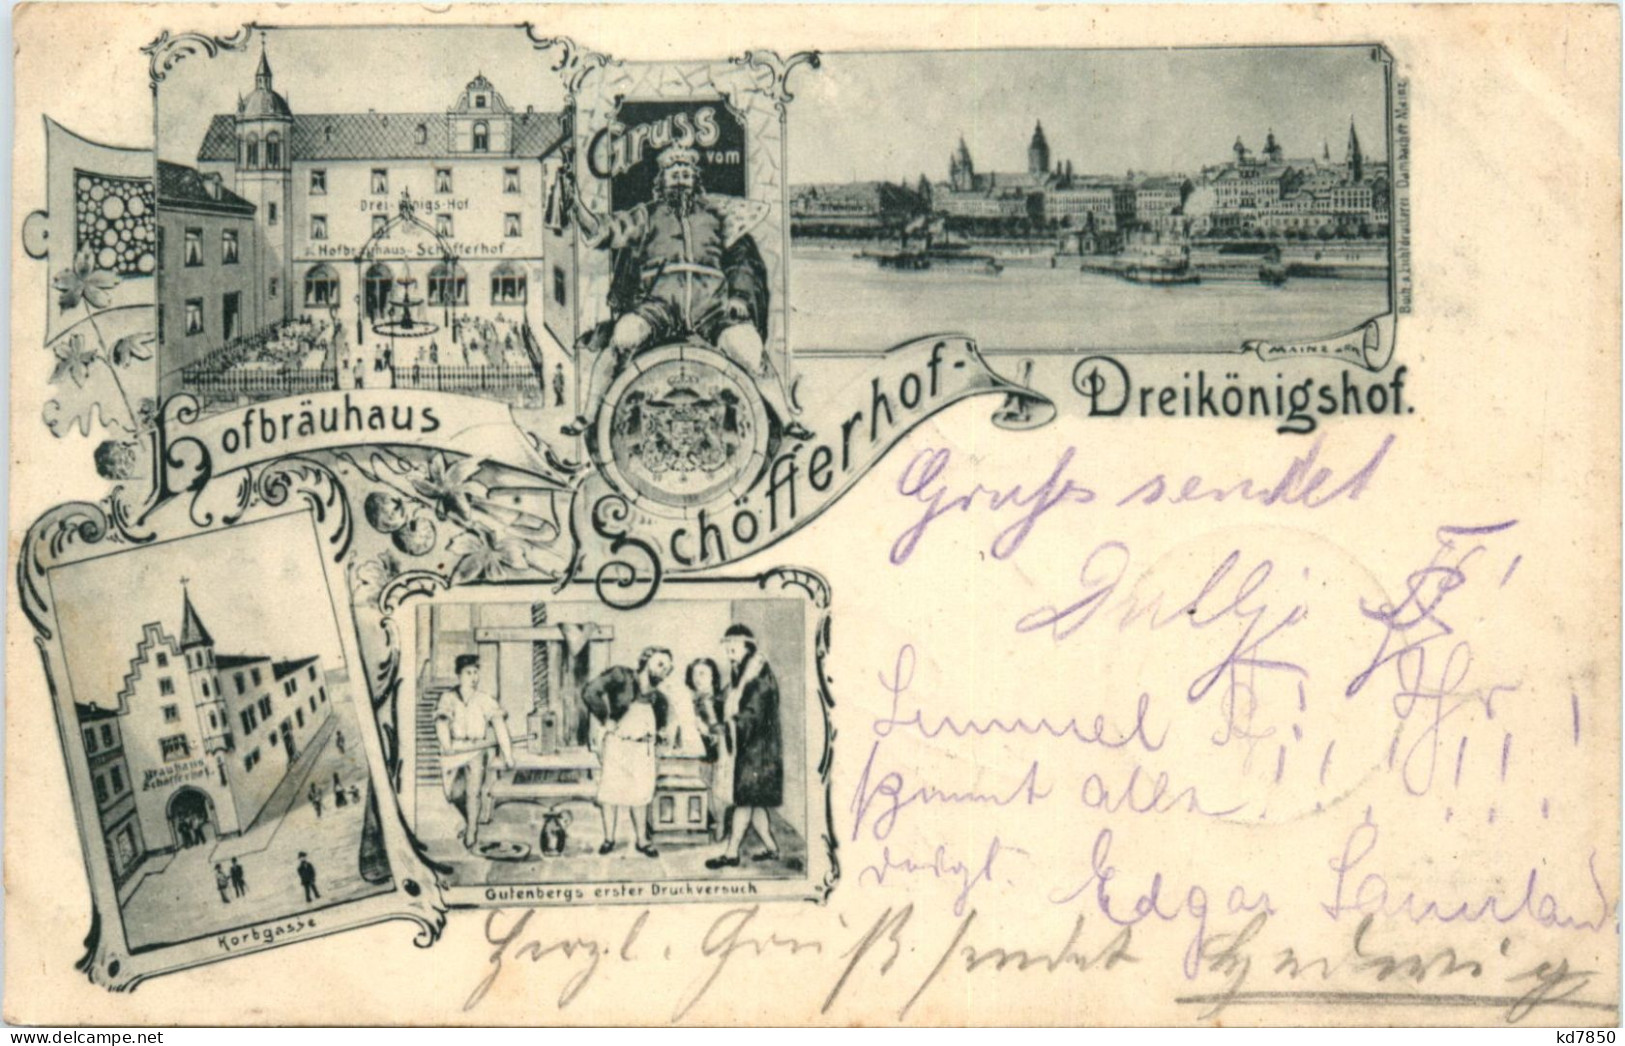 Gruss
vom
Drei-Königs-Hof
Hofbräuhaus-Schöfferhof
MAINZ
Buch- u. Lichtdruckerei Dambacher Mainz
Hofbräuhaus
Schöfferhof-
Dreikönigshof.
Brauhaus
Schöfferhof.
Korbgasse
Gutenbergs erster Druckversuch
Gruss sendet
kommt alle
Edgar Sauerland
Herzl. Gruß sendet Hedwig
kd7850